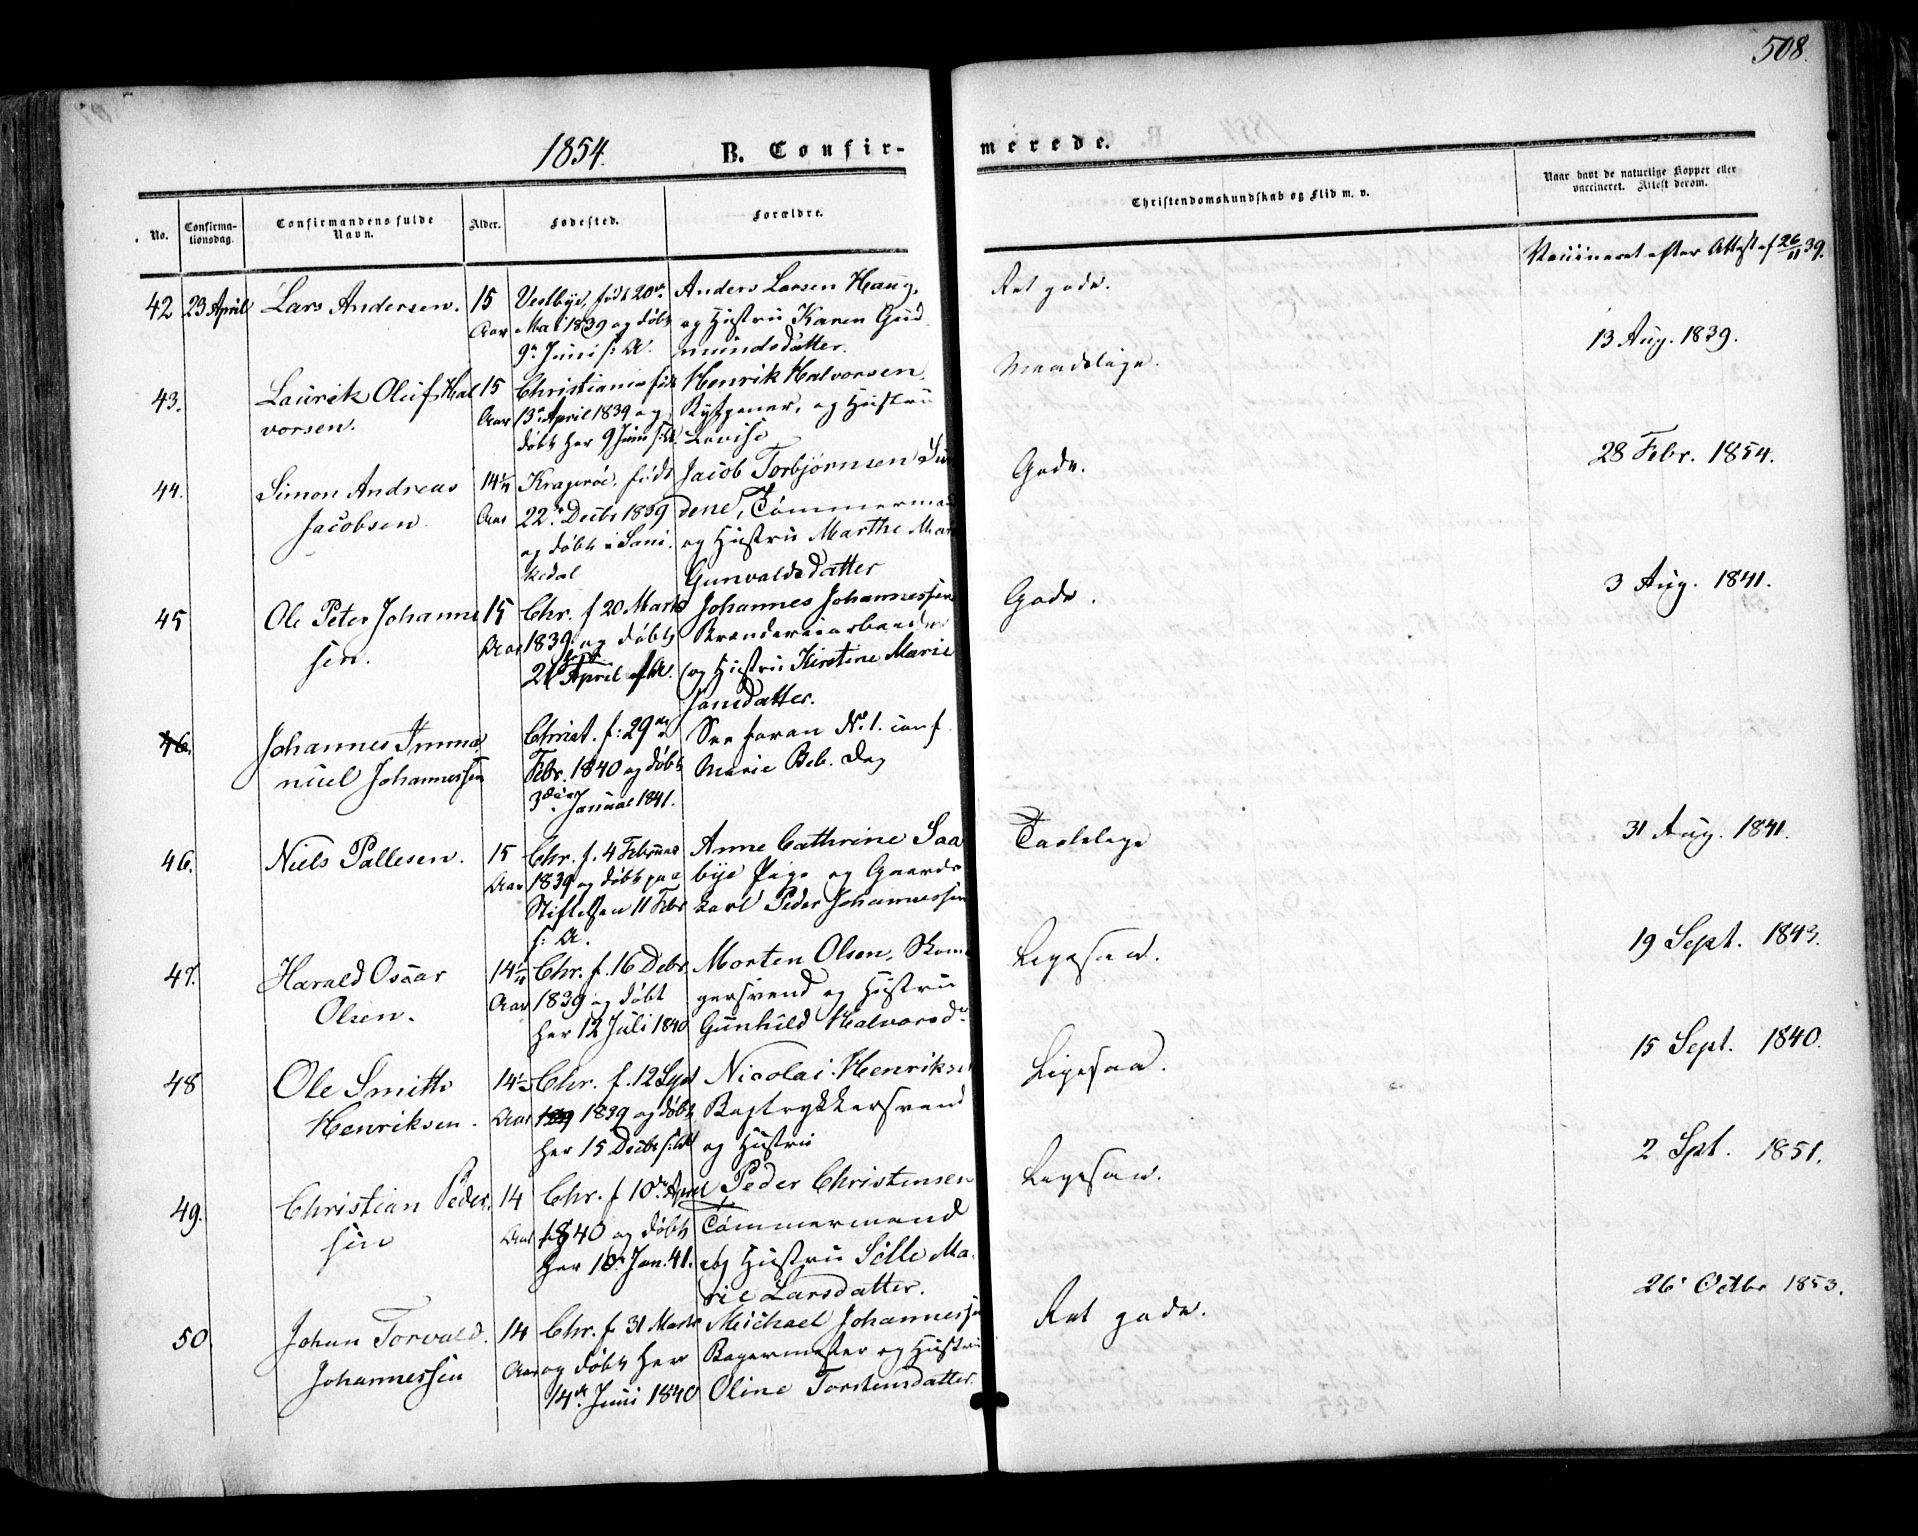 508.
1854.
B. Confir-
merede.
No.
Confirma-
tionsdag.
Confirmandens fulde
Navn.
Alder.
Fødested.
Forældre.
Christendomskundskab og Flid m. v.
Naar havt de naturlige Kopper eller
vaccineret. Attest derom.
42
23 April
Lars Andersen.
15
Aar
Vestbye, født 20de
Mai 1839 og døbt
9de Juni s: A.
Anders Larsen Haug,
og Hustru Karen Gud
mundsdatter.
Ret godt.
Vaccineret efter Attest af 26/11 39.
43.
Laurik Oluf Hal
vorsen.
15
Aar
Christiania født
13de April 1839 og
døbt her 9 Juni s: A.
Henrik Halvorsen,
og Hustru
Lovise
Maadelige.
13 Aug. 1839.
44.
Simon Andreas
Jacobsen
14 1/4
Aar
Kragerøe, født
22de Decbr 1839
og døbt i Sani
kedal
Jacob Torbjørnsen Su
dene, Tømmermand
og Hustru Marthe Mar
Gunvaldsdatter
Godt.
28 Febr. 1854.
45
Ole Peter Johanne
sen.
15
Aar
Chr. f 20 Marts
1839 og døbt
21 April s: A.
Johannes Johannessen
Brænderiearbeider
og Hustru Kirstine Marie
Jansdatter.
Godt.
3 Aug. 1841.
46.
Johannes Imma
nuel Johannessen
Christ. f: 29de
Febr. 1840 og døbt
3die Januar 1841.
See foran No 1. conf
Marie Beb. Dag
46.
Niels Pallesen.
15
Aar
Chr. f. 4 Februar
1839 og døbt paa
Stiftelsen 11 Febr
s: A.
Anne Cathrine Saa
bye Pige og Gaards
karl Peder Johannessen
Taalelige
31 Aug. 1841.
47.
Harald Oscar
Olsen.
14 1/4
Aar
Chr. f. 16 Debr.
1839 og døbt
her 12 Juli 1840
Morten Olsen, Skoma
gersvend og Hustru
Gunhild Halvorsdr
Ligesaa.
19 Sept. 1843.
48
Ole Smith
Henriksen.
14 1/2
Aar
Chr. f. 12 Sept
1839 og døbt
her 15 Decbr s: A
Nicolai Henriksen
Bogtrykkersvend
og Hustru
Ligesaa.
15 Sept. 1840.
49.
Christian Peder
sen
14
Aar
Chr. f 10de April
1840 og døbt
her 10de Jan. 41.
Peder Christensen
Tømmermand
og Hustru Sille Ma
rie Larsdatter.
Ligesaa.
2 Spt. 1851.
50.
Johan Torvald
Johannessen
14
Aar
Chr. f 31 Marts
og døbt her
14de Juni 1840
Michael Johannessen
Bagermester og Hustru
Oline Torstensdatter
Ret godt.
26 Octbr 1853.